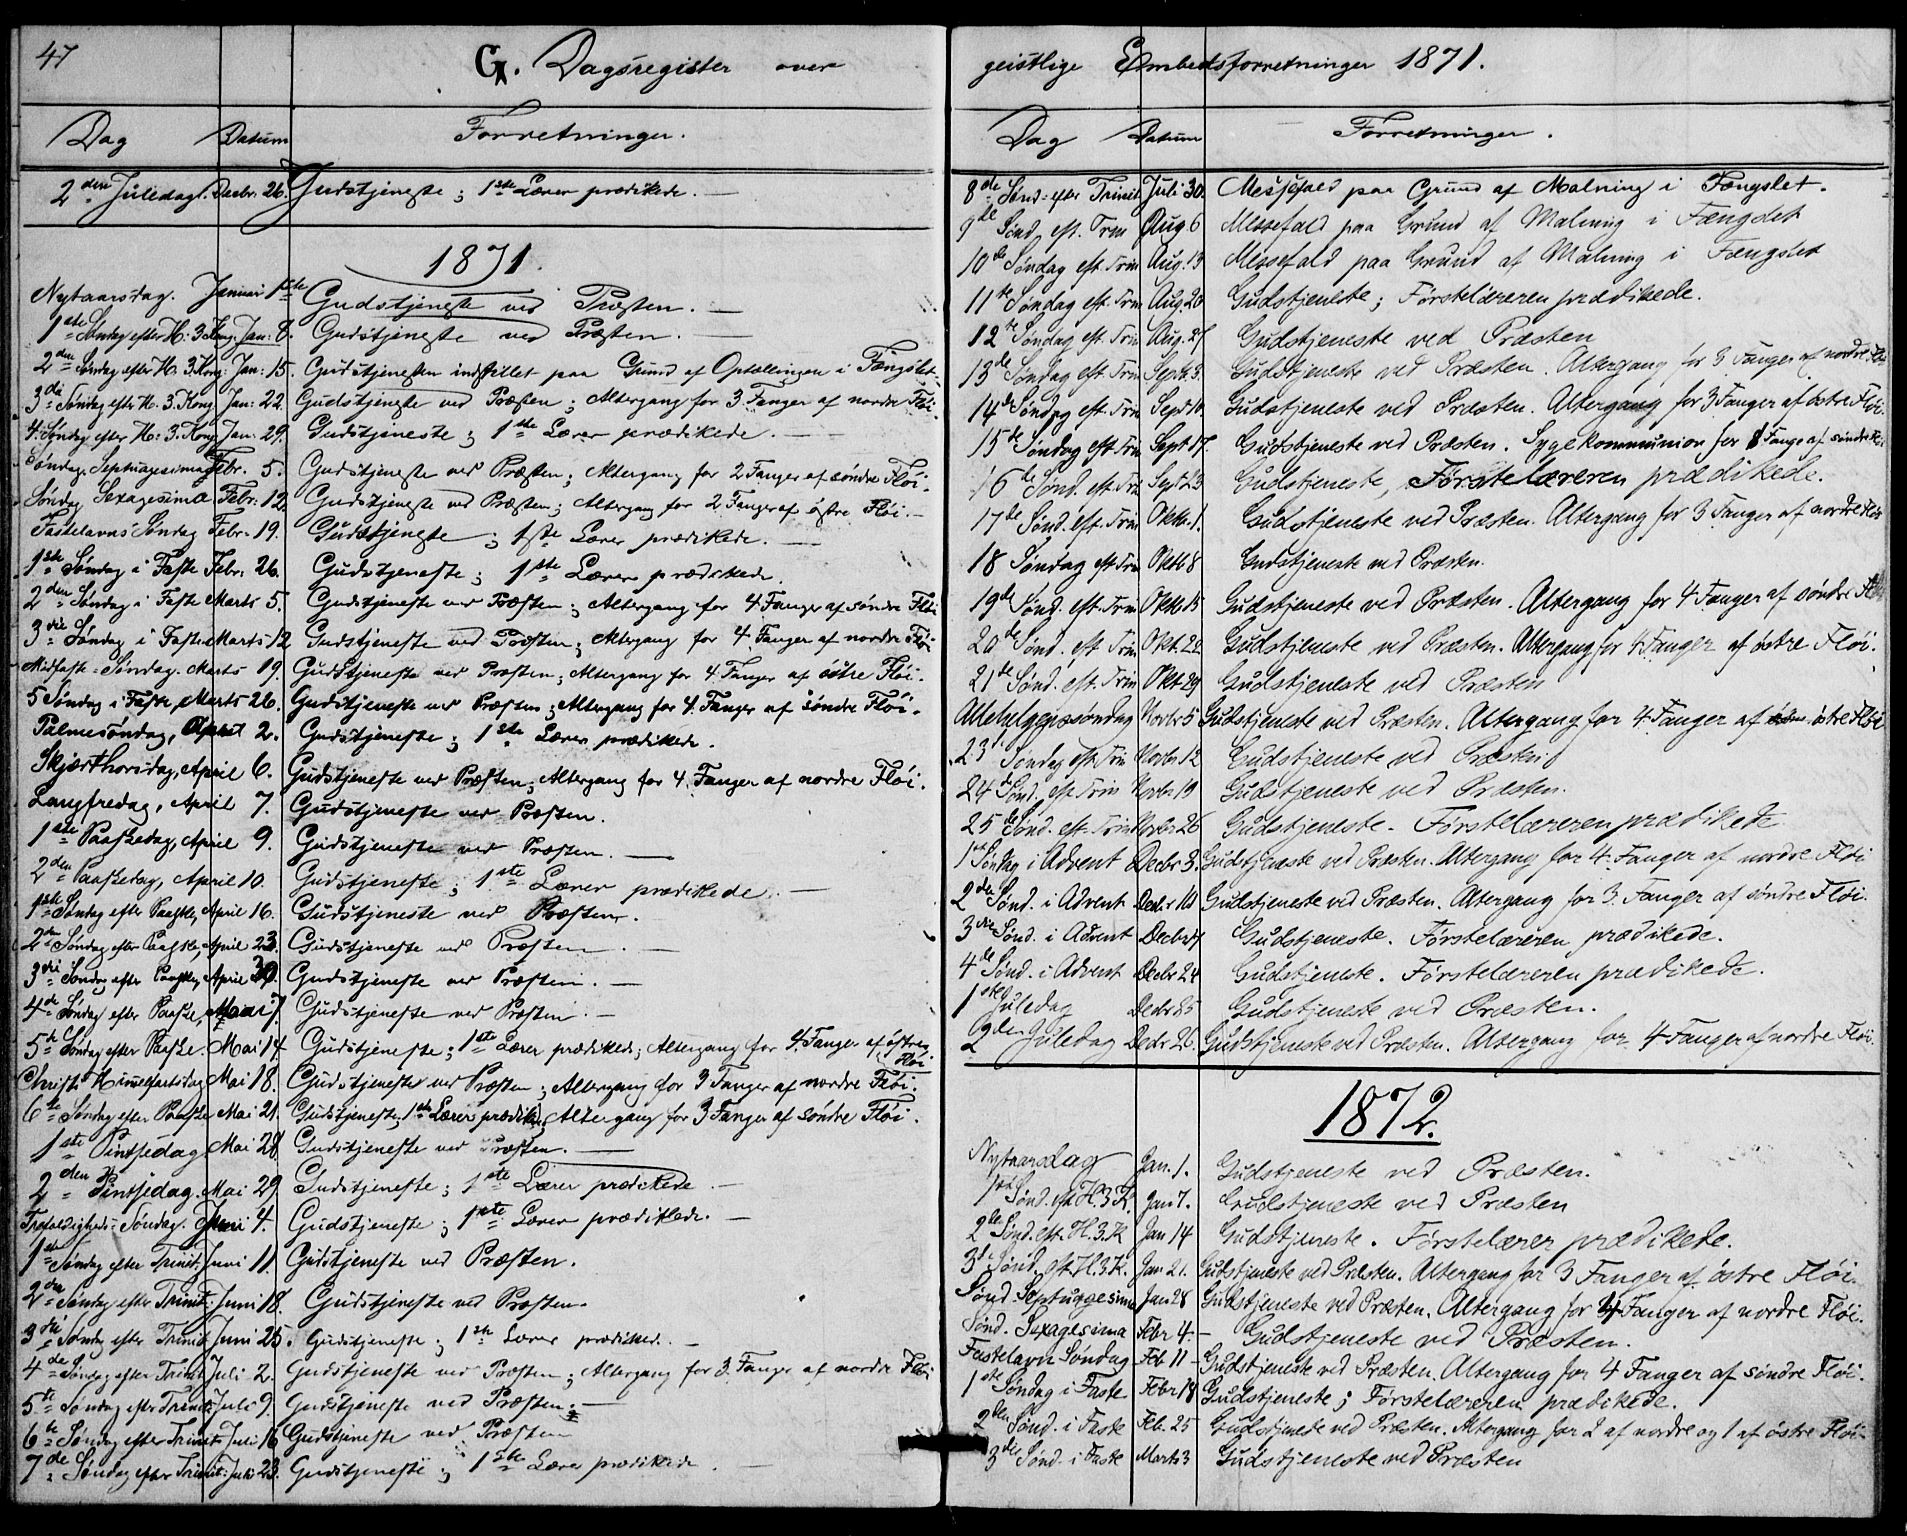 47
G. Dagsregister over
Dag Datum Forretninger.
2den Juledag. Decbr. 26. Gudstjeneste; 1ste Lærer prædikede. —
1871.
Nytaarsdag. Januar 1ste Gudstjeneste ved Præsten. —
1ste Søndag efter H. 3 Kong. Jan: 8. Gudstjeneste ved Præsten. —
2den Søndag efter H. 3 Kong: Jan: 15. Gudstjenesten indstillet paa Grund af Optællingen i Fængslet.
3die Søndag efter H. 3. Kong. Jan: 22. Gudstjeneste ved Præsten; Altergang for 3 Fanger af nordre Fløi.
4. Søndag efter H: 3. Kong. Jan: 29. Gudstjeneste; 1ste Lærer prædikede. —
Søndag Septuagesima Febr. 5. Gudstjeneste ved Præsten; Altergang for 2 Fanger af søndre Fløi.
Søndag Sexagesima Febr: 12. Gudstjeneste ved Præsten; Altergang for 2 Fanger af østre Fløi. —
Fastelavns Søndag Febr. 19. Gudstjeneste; 1ste Lærer prædikede. —
1ste Søndag i Faste Febr: 26. Gudstjeneste; 1ste Lærer prædikede.
2den Søndag i Faste Marts 5. Gudstjeneste ved Præsten; Altergang for 4 Fanger af søndre Fløi
3die Søndag i Faste Marts 12 Gudstjeneste ved Præsten; Altergang for 4 Fanger af nordre Fløi.
Midfaste-Søndag. Marts 19. Gudstjeneste ved Præsten; Altergang for 4 Fanger af østre Fløi.
5 Søndag i Faste, Marts 26. Gudstjeneste ved Præsten; Altergang for 4. Fanger af søndre Fløi.
Palmesøndag, April 2. Gudstjeneste; 1ste Lærer prædikede.
Skjærthorsdag, April 6. Gudstjeneste ved Præsten; Altergang for 4. Fanger af nordre Fløi.
Langfredag, April 7. Gudstjeneste ved Præsten.
1ste Paaskedag, April 9. Gudstjeneste ved Præsten. —
2den Paaskedag, April 10. Gudstjeneste; 1ste Lærer prædikede. —
1ste Søndag efter Paaske, April 16. Gudstjeneste ved Præsten.
2den Søndag efter Paaske, April 23. Gudstjeneste ved Præsten. —
3die Søndag efter Paaske, April 30. Gudstjeneste ved Præsten. —
4de Søndag efter Paaske, Mai 7. Gudstjeneste ved Præsten. —
5te Søndag efter Paaske. Mai 14 Gudstjeneste; 1ste Lærer prædikede; Altergang for 4. Fanger af østre
Fløi
Christi Himmelfartsdag Mai 18. Gudstjeneste ved Præsten; Altergang for 3 Fanger af nordre Fløi.
6te Søndag efter Paaske Mai 21. Gudstjeneste; 1ste Lærer prædiked; Altergang for 3 Fanger af søndre Fløi.
1ste Pintsedag Mai 28. Gudstjeneste ved Præsten. —
2den Pintsedag. Mai 29. Gudstjeneste; 1ste Lærer prædikede. —
Trefoldigheds-Søndag. Juni 4. Gudstjeneste; 1ste Lærer prædikede. —
1ste Søndag efter Trinit: Juni 11. Gudstjeneste ved Præsten.
2den Søndag efter Trinit: Juni 18. Gudstjeneste ved Præsten.
3die Søndag efter Trinit: Juni 25. Gudstjeneste; 1ste Lærer prædiked. —
4de Søndag efter Trinit Juli 2. Gudstjeneste ved Præsten; Altergang for 3. Fanger af nordre Fløi
5te Søndag efter Trinit: Juli 9. Gudstjeneste ved Præsten. —
6te Søndag efter Trinit: Juli 16 Gudstjeneste ved Præsten
7de Søndag efter Trinit: Juli 23. Gudstjeneste; 1ste Lærer prædikede. —
geistlige Embedsforretninger 1871.
Dag Datum Forretninger.
8de Sønd. efter Trinit Juli 30. Messefald paa Grund af Malning i Fængslet.
9de Sønd. eft. Trin Aug. 6 Messefald paa Grund af Malning i Fængslet
10de Søndag eft. Trin Aug. 13 Messefald paa Grund af Malning i Fængslet
11te Søndag eft. Trin Aug. 20 Gudstjeneste; Førstelæreren prædikede.
12te Søndag eft. Trin Aug. 27 Gudstjeneste ved Præsten
13de Søndag eft. Trin Septb. 3. Gudstjeneste ved Præsten. Altergang for 3 Fanger af nordre Fløi
14de Søndag eft. Trin Sept 10 Gudstjeneste ved Præsten. Altergang for 3 Fanger af østre Fløi.
15de Søndag eft. Trin Sept 17. Gudstjeneste ved Præsten. Sygekommunion for 1 Fange af søndre Fl.
16de Sønd. eft. Trin Sept 23 Gudstjeneste, Førstelæreren prædikede.
17de Sønd. eft. Trin Oktb. 1. Gudstjeneste ved Præsten. Altergang for 3 Fanger af nordre Fløi
18 Søndag eft. Trin Oktb 8 Gudstjeneste ved Præsten.
19de Sønd. eft. Trin Oktb. 15 Gudstjeneste ved Præsten. Altergang for 4 Fanger af søndre Fløi
20de Sønd. eft. Trin Okt. 22 Gudstjeneste ved Præsten. Altergang for 4 Fanger af østre Fløi.
21de Sønd. eft. Trin Okt 29 Gudstjeneste ved Præsten
Allehelgenssøndag Novbr 5 Gudstjeneste ved Præsten. Altergang for 4 Fanger af østre Fløi
23de Søndag eft. Trin Novbr. 12 Gudstjeneste ved Præsten
24de Sønd. eft. Trin Novbr 19 Gudstjeneste ved Præsten.
25de Sønd. eft. Trin Novbr 26 Gudstjeneste. Førstelæreren prædikede
1ste Søndag i Advent Decbr 3. Gudstjeneste ved Præsten. Altergang for 4 Fanger af nordre Fløi
2den Sønd. i Advent Decbr 10 Gudstjeneste ved Præsten. Altergang for 3. Fanger af søndre Fløi.
3die Sønd. i Advent Decbr 17 Gudstjeneste. Førstelæreren prædikede.
4de Sønd. i Advent Decbr 24 Gudstjeneste. Førstelæreren prædikede.
1ste Juledag Decbr 25 Gudstjeneste ved Præsten.
2den Juledag Decbr 26. Gudstjeneste ved Præsten. Altergang for 4 Fanger af nordre Fløi.
1872.
Nytaarsdag Jan. 1. Gudstjeneste ved Præsten.
1ste Sønd. eft. H. 3. K. Jan 7. Gudstjeneste ved Præsten
2den Sønd. eft. H. 3. K Jan 14 Gudstjeneste. Førstelærer prædikede.
3die Sønd. eft. H. 3. K. Jan. 21. Gudstjeneste ved Præsten. Altergang for 3 Fanger af østre Fløi.
Sønd. Septuagesima Jan 28 Gudstjeneste ved Præsten. Altergang for 4 Fanger af nordre Fløi.
Sønd. Sexagesima Febr 4. — Gudstjeneste ved Præsten.
Fastelavn Søndag Feb 11 — Gudstjeneste ved Præsten. Altergang for 4 Fanger af søndre Fløi.
1ste Søndag i Faste Febr 18 Gudstjeneste; Førstelæreren prædikede.
2den Sønd. i Faste Feb. 25 Gudstjeneste ved Præsten. Altergang for 2 af nordre og 1 af østre Fløi.
3die Sønd. i Faste Marts 3 Gudstjeneste ved Præsten